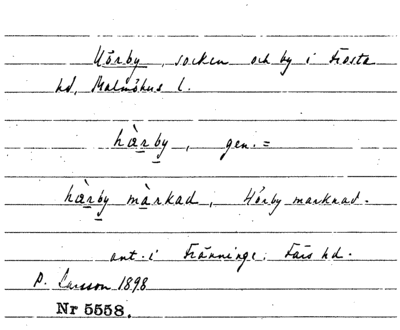 Hörby, socken och by i Frosta
hd, Malmöhus l.
hàrby, gen. =
hàrby màrkad, Hörby marknad.
ant. i Tränninge. Färs hd.
P. Larsson 1898
Nr 5558.